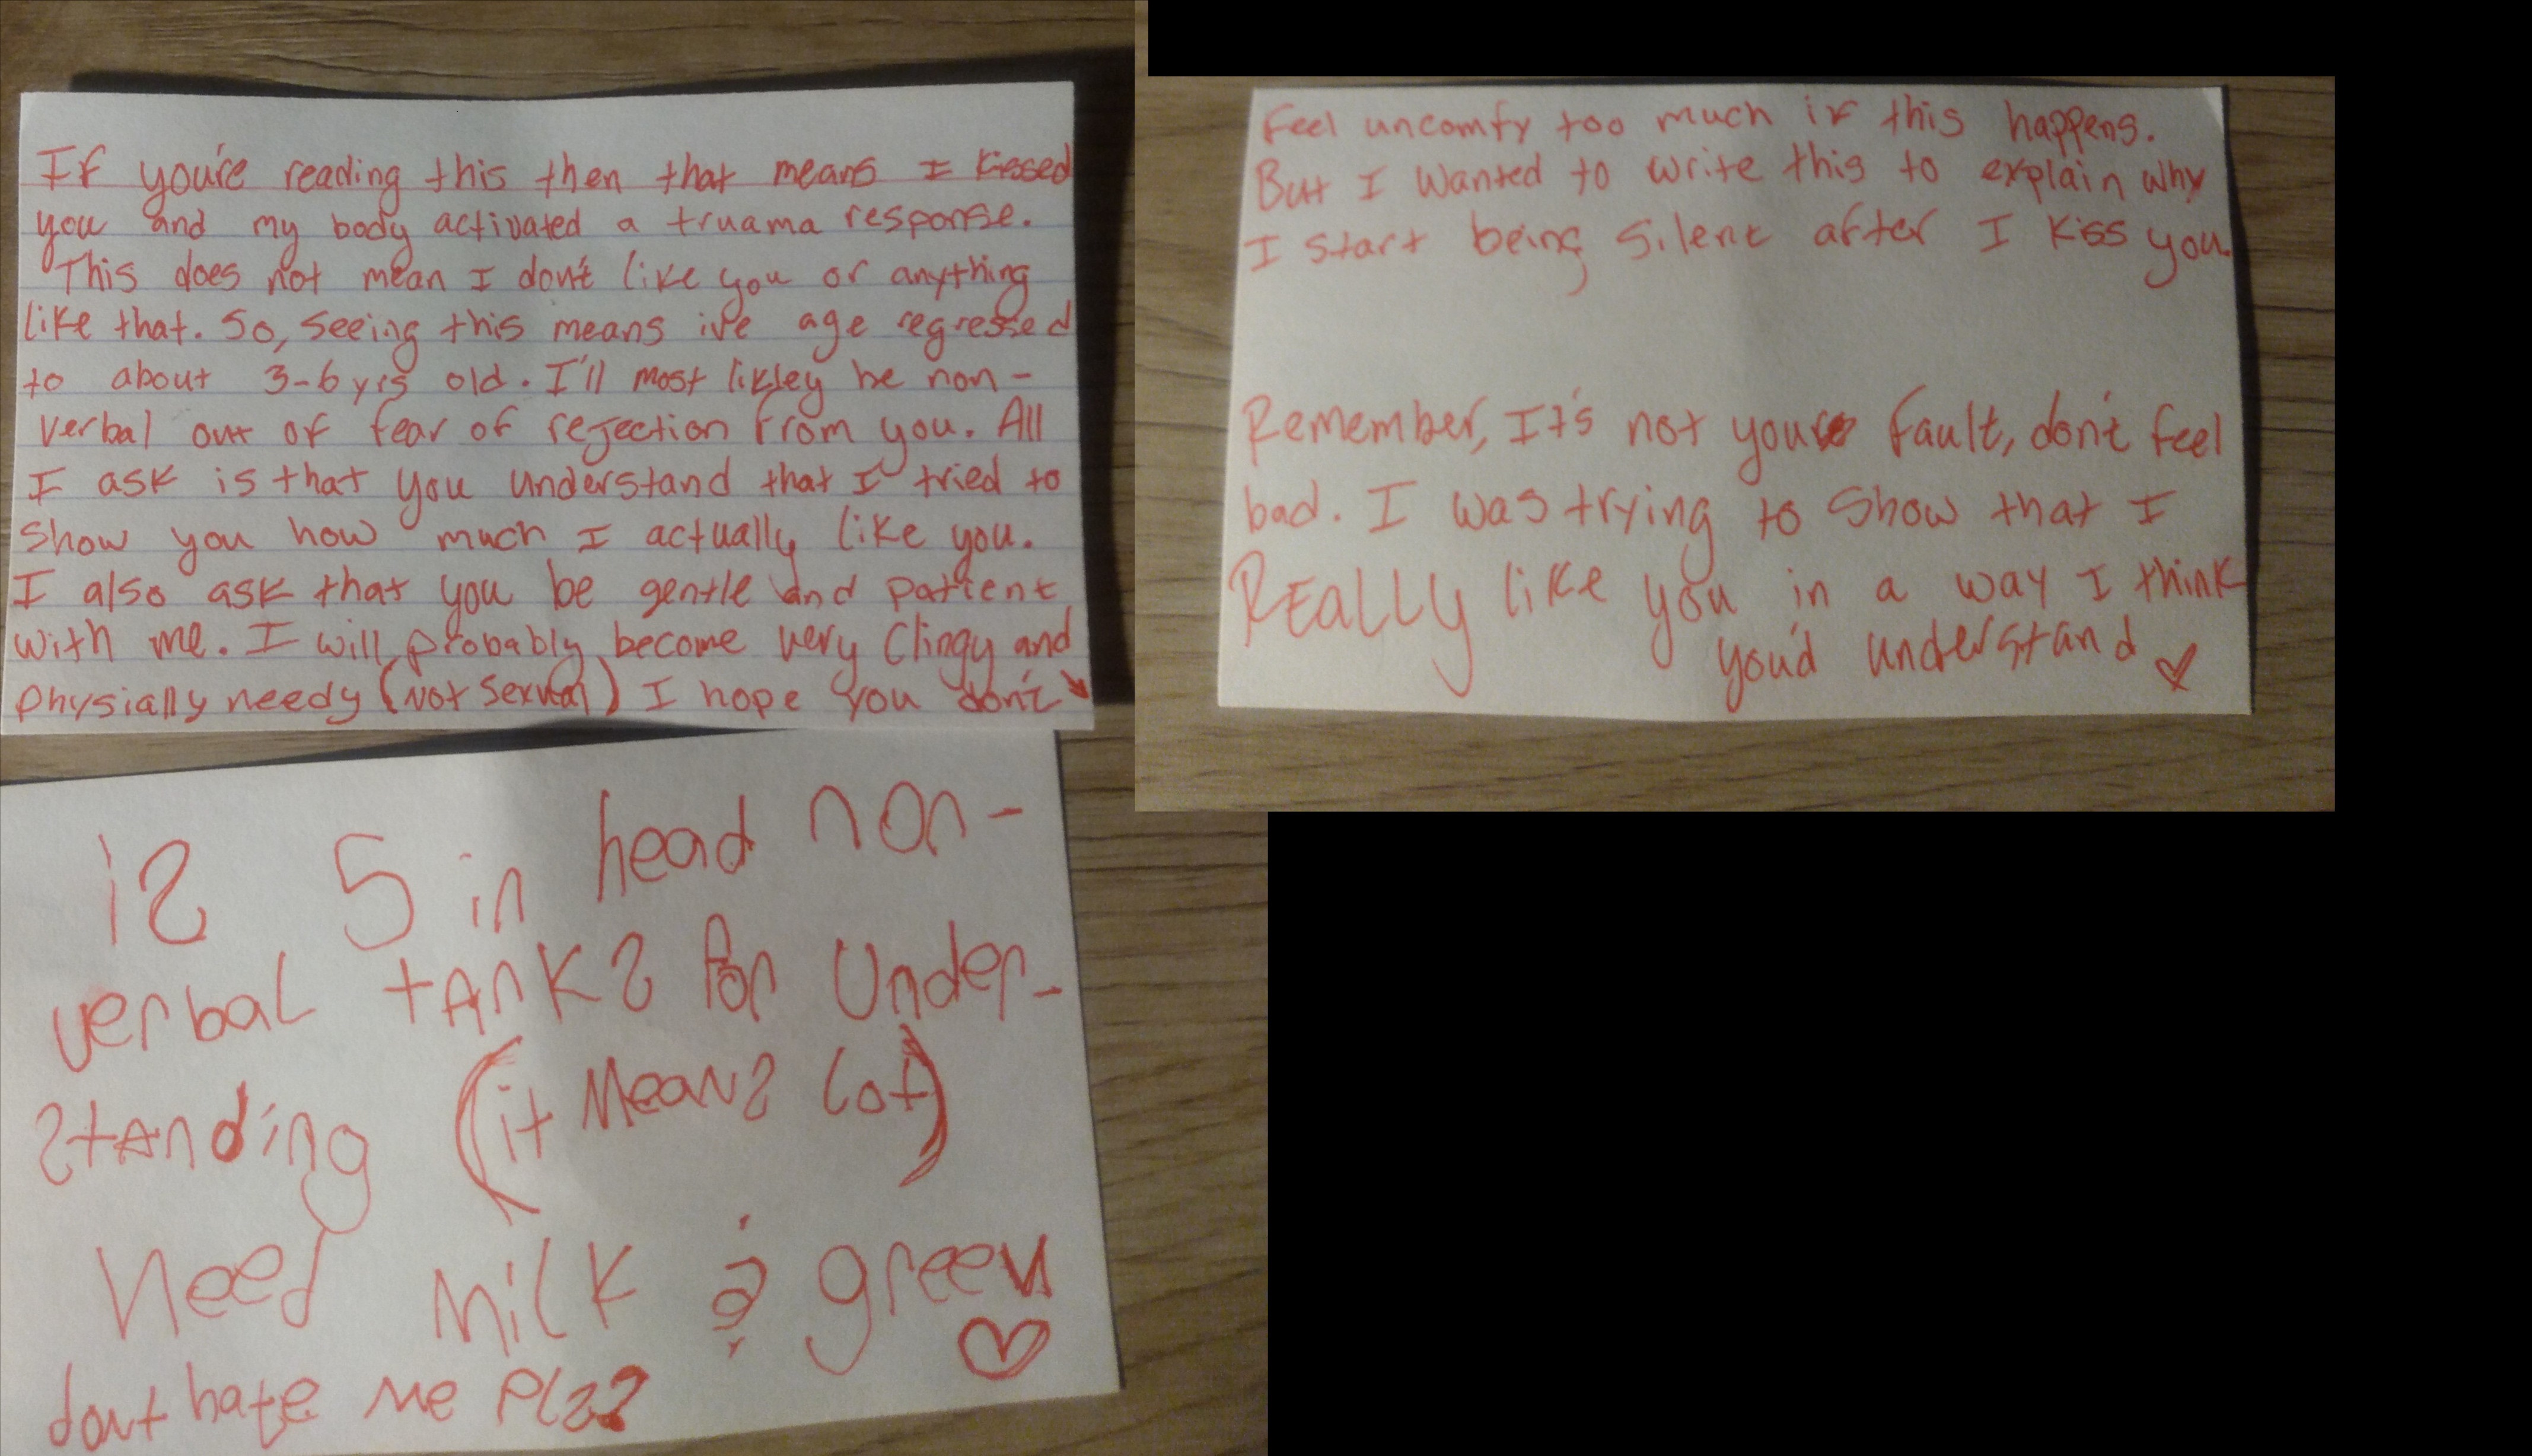 If you're reading this then that means I kissed
you and my body activated a truama response.
This does not mean I don't like you or anything
like that. So, seeing this means ive age regressed
to about 3-6yrs old. I'll most likley be non-
verbal out of fear of rejection from you. All
I ask is that you understand that I tried to
show you how much I actually like you.
I also ask that you be gentle and patient
with me. I will probably become very clingy and
physially needy (not sexual) I hope you don't
feel uncomfy too much if this happens.
But I wanted to write this to explain why
I start being silent after I kiss you.
Remember, It's not your fault, don't feel
bad. I was trying to show that I
REALLY like you in a way I think
you'd understand
is 5 in head non-
verbal tanks for under-
standing (it means lot)
need milk & green
dont hate me pls?